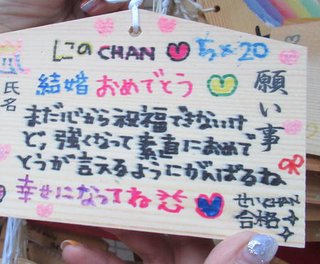 しこのCHAN ちゃ×20
結婚おめでとう
まだ心から祝福できないけ
ど、強くなって素直におめで
とうが言えるようにがんばるね
幸せになってね
願い事
氏名
せいCHAN
合格